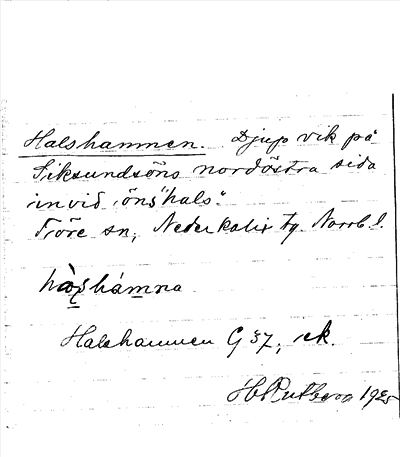 Halshamnen. Djup vik på
Siksundsöns nordöstra sida
invid öns "hals".
Töre sn, Nederkalix tg. Norrb. l.
hàlshámna
Halshamnen G 37, ek.
H 1925